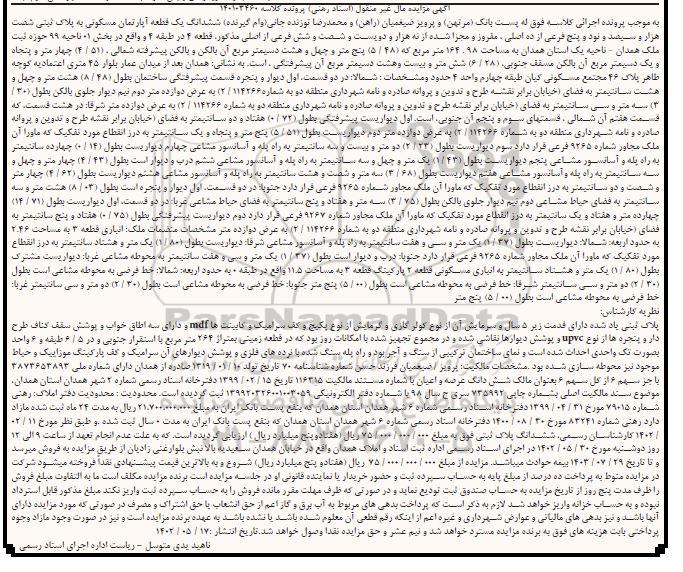 آگهی مزایده مال غیر منقول (اسناد رهنی) پرونده کلاسه ۱۴۰۱۰۳۴۶۰
به موجب پرونده اجرائی کلاسه فوق له پست بانک (مرتهن) و پرویز ضیغمیان (راهن) و محمدرضا توزنده جانی(وام گیرنده) ششدانگ یک قطعه آپارتمان مسکونی به پلاک ثبتی شصت
هزار و سیصد و نود و پنج فرعی از ده اصلی ، مفروز و مجزا شده از نه هزار و دویست و شصت و شش فرعی از اصلی مذکور، قطعه ۴ در طبقه ۴ و واقع در بخش ۰۱ ناحیه ۹۹ حوزه ثبت
ملک همدان - ناحیه یک استان همدان به مساحت ۹۸ . ۱۶۴ متر مربع که (۴۸ / ۵) پنج متر و چهل و هشت دسیمتر مربع آن بالکن و بالکن پیشرفته شمالی ، (۵۱ / ۴) چهار متر و پنجاه
و یک دسیمتر مربع آن بالکن مسقف جنوبی، (۲۸ / ۶) شش متر و بیست وهشت دسیمتر مربع آن پیشرفتگی . است. به نشانی: همدان بعد از میدان عمار بلوار ۴۵ متری اعتمادیه کوچه
طاهر پلاک ۴۶ مجتمع مسکونی کیان طبقه چهارم واحد ۴ حدود ومشخصات : شمالا: در دو قسمت، اول دیوار و پنجره قسمت پیشرفتگی ساختمان بطول (۴۸ / ۸) هشت متر و چهل و
هشت سانتیمتر به فضای (خیابان برابر نقشه طرح و تدوین و پروانه صادره و نامه شهرداری منطقه دو به شماره۱۱۴۲۶۶ / ۲) به عرض دوازده متر دوم نیم دیوار جلوی بالکن بطول (۳۰ /
۳) سه متر و سی سانتیمتر به فضای (خیابان برابر نقشه طرح و تدوین و پروانه صادره و نامه شهرداری منطقه دو به شماره ۱۱۴۲۶۶ / ۲) به عرض دوازده متر شرقا: در هشت قسمت، که
قسمت هفتم آن شمالی ، قسمتهای سوم و پنجم آن جنوبی، است. اول دیواریست پیشرفتگی بطول (۷۲ / ۰) هفتاد و دو سانتیمتر به فضای (خیابان برابر نقشه طرح و تدوین و پروانه
صادره و نامه شهرداری منطقه دو به شماره ۱۱۴۲۶۶ / ۲) به عرض دوازده متر دوم دیواریست بطول (۵۱ / ۵) پنج متر و پنجاه و یک سانتیمتر به درز انقطاع مورد تفکیک که ماورا آن
ملک مجاور شماره ۹۲۶۵ فرعی قرار دارد سوم دیواریست بطول (۲۳ / ۲) دو متر و بیست و سه سانتیمتر به راه پله و آسانسور مشاعی چهارم دیواریست بطول (۱۴ / ۰) چهارده سانتیمتر
به راه پله و آسانسور مشاعی پنجم دیواریست بطول (۴۳ / ۱) یک متر و چهل و سه سانتیمتر به راه پله و آسانسور مشاعی ششم درب و دیوار است بطول (۴۳ / ۴) چهار متر و چهل و
سه سانتیمتر به راه پله و آسانسور مشاعی هفتم دیواریست بطول (۶۸ / ۳) سه متر و شصت و هشت سانتیمتر به راه پله و آسانسور مشاعی هشتم دیواریست بطول (۶۲ / ۴) چهار متر
و شصت و دو سانتیمتر به درز انقطاع مورد تفکیک که ماورا آن ملک مجاور شماره ۹۲۶۵ فرعی قرار دارد جنوبا: در دو قسمت، اول دیوار و پنجره است بطول (۰۳ / ۸) هشت متر و سه
سانتیمتر به فضای حیاط مشاعی دوم نیم دیوار جلوی بالکن بطول (۷۵ / ۳) سه متر و هفتاد و پنج سانتیمتر به فضای حیاط مشاعی غربا: در دو قسمت، اول دیواریست بطول (۷۱ / ۱۴)
چهارده متر و هفتاد و یک سانتیمتر به درز انقطاع مورد تفکیک که ماورا آن ملک مجاور شماره ۹۲۶۷ فرعی قرار دارد دوم دیواریست پیشرفتگی بطول (۷۵ / ۰) هفتاد و پنج سانتیمتر به
فضای (خیابان برابر نقشه طرح و تدوین و پروانه صادره و نامه شهرداری منطقه دو به شماره ۱۱۴۲۶۶ / ۲) به عرض دوازده متر مشخصات منضمات ملک: انباری قطعه ۳ به مساحت ۲.۴۶
به حدود اربعه: شمالا: دیواریست بطول (۳۷ / ۱) یک متر و سی و هفت سانتیمتر به راه پله و آسانسور مشاعی شرقا: دیواریست بطول (۸۰ / ۱) یک متر و هشتاد سانتیمتر به درز انقطاع
مورد تفکیک که ماورا آن ملک مجاور شماره ۹۲۶۵ فرعی قرار دارد جنوبا: درب و دیوار است بطول (۳۷ / ۱) یک متر و سی و هفت سانتیمتر به محوطه مشاعی غربا: دیواریست مشترک
بطول (۸۰ / ۱) یک متر و هشتاد سانتیمتر به انباری مسکونی قطعه ۲ پارکینگ قطعه ۳ به مساحت ۱۱.۵ واقع در طبقه ۰ به حدود اربعه: شمالا: خط فرضی به محوطه مشاعی است بطول
(۳۰ / ۲) دو متر و سی سانتیمتر شرقا: خط فرضی به محوطه مشاعی است بطول (۰۰ / ۵) پنج متر جنوبا: خط فرضی به محوطه مشاعی است بطول (۳۰ / ۲) دو متر و سی سانتیمتر غربا:
خط فرضی به محوطه مشاعی است بطول (۰۰ / ۵) پنج متر
نظریه کارشناس:
پلاک ثبتی یاد شده دارای قدمت زیر ۵ سال و سرمایش آن از نوع کولر گازی و گرمایش از نوع پکیج و کف سرامیک و کابینت ها mdf و دارای سه اطاق خواب و پوشش سقف کناف طرح
دار و پنجره ها از نوع upvc و پوشش دیوارها نقاشی شده و در مجموع تجهیز شده با امکانات روز بود که در قطعه زمینی بمتراژ ۲۶۴ متر مربع با استقرار جنوبی و در ۵ / ۶ طبقه و ۶ واحد
بصورت تک واحدی احداث شده است و نمای ساختمان ترکیبی از سنگ و آجر بود و راه پله سنگ شده با نرده های فلزی و پوشش دیوارهای آن سرامیک و کف پارکینگ موزاییک و حیاط
موجود نیز محوطه سازی شده بود .مشخصات مالکیت: پرویز / ضیغمیان فرزند حسن شماره شناسنامه ۷۰ تاریخ تولد ۱۰ / ۰۱ / ۱۳۱۹ صادره از همدان دارای شماره ملی ۳۸۷۳۶۵۳۸۹۳
با جز سهم ۶ از کل سهم ۶ بعنوان مالک شش دانگ عرصه و اعیان با شماره مستند مالکیت ۱۱۶۳۱۵ تاریخ ۱۵ / ۰۲ / ۱۳۹۹ دفترخانه اسناد رسمی شماره ۲ شهر همدان استان همدان،
موضوع سند مالکیت اصلی بشماره چاپی ۷۳۵۹۹۲ سری ج سال ۹۸ با شماره دفتر الکترونیکی ۱۳۹۹۲۰۳۲۶۰۰۱۰۰۳۰۵۹ ثبت گردیده است. محدودیت : محدودیت دفتر املاک: رهنی
شماره ۷۹۰۱۵ مورخ ۳۱ / ۰۴ / ۱۳۹۹ دفترخانه اسناد رسمی شماره ۶ شهر همدان استان همدان که بنفع پست بانک ایران به مبلغ ۲۱.۷۰۰.۰۰۰.۰۰۰ ریال به مدت ۲۴ ماه ثبت شده مازاد
دارد رهنی شماره ۸۳۲۴۱ مورخ ۳۰ / ۰۸ / ۱۴۰۰ دفترخانه اسناد رسمی شماره ۶ شهر همدان استان همدان که بنفع پست بانک ایران به مدت ۰ سال ثبت شده .و طبق نظر مورخ ۱۱ / ۰۲
/ ۱۴۰۲ کارشناسان رسمی، ششدانگ پلاک ثبتی فوق به مبلغ ۰۰۰ / ۰۰۰ / ۰۰۰ / ۷۵ ریال (هفتادوپنج میلیارد ریال) ارزیابی گردیده است. که به علت عدم انجام تعهد از ساعت ۹ الی ۱۲
روز دوشنبه مورخ ۳۰ / ۰۵ / ۱۴۰۲ در اجرای اسناد رسمی اداره ثبت اسناد و املاک همدان واقع در خیابان همدان سعیدیه بالا نبش بلوارغنی زادیان از طریق مزایده به فروش میرسد
و تا تاریخ ۲۹ / ۰۷ / ۱۴۰۳ بیمه حوادث میباشد. مزایده از مبلغ ۰۰۰ / ۰۰۰ / ۰۰۰ / ۷۵ ریال (هفتادو پنج میلیارد ریال) شروع و به بالاترین قیمت پیشنهادی نقدا فروخته میشود شرکت
در مزایده منوط به پرداخت ده درصد از مبلغ پایه به حساب سپرده ثبت و حضور خریدار یا نماینده قانونی او در جلسه مزایده است برنده مزایده مکلف است ما به التفاوت مبلغ فروش
را ظرف مدت پنج روز از تاریخ مزایده به حساب صندوق ثبت تودیع نماید و در صورتی که ظرف مهلت مقرر مانده فروش را به حساب سپرده ثبت واریز نکند مبلغ مذکور قابل استرداد
نبوده و به حساب خزانه واریز خواهد شد لازم به ذکر است که پرداخت بدهی های مربوط به آب برق و گاز اعم از حق انشعاب یا حق اشتراک و مصرف در صورتی که مورد مزایده دارای
آنها باشد و نیز بدهی های مالیاتی و عوارض شهرداری و غیره اعم از اینکه رقم قطعی آن معلوم شده باشد یا نشده باشد به عهده برنده مزایده است و نیز در صورت وجود مازاد وجوه
پرداختی بابت هزینه های فوق به برنده مزایده مسترد خواهد شد و نیم عشر و حق مزایده نقدا وصول خواهد شد.تاریخ انتشار :۱۷ / ۰۵ / ۱۴۰۲
ناهید یدی متوسل - ریاست اداره اجرای اسناد رسمی
ParsNamadData